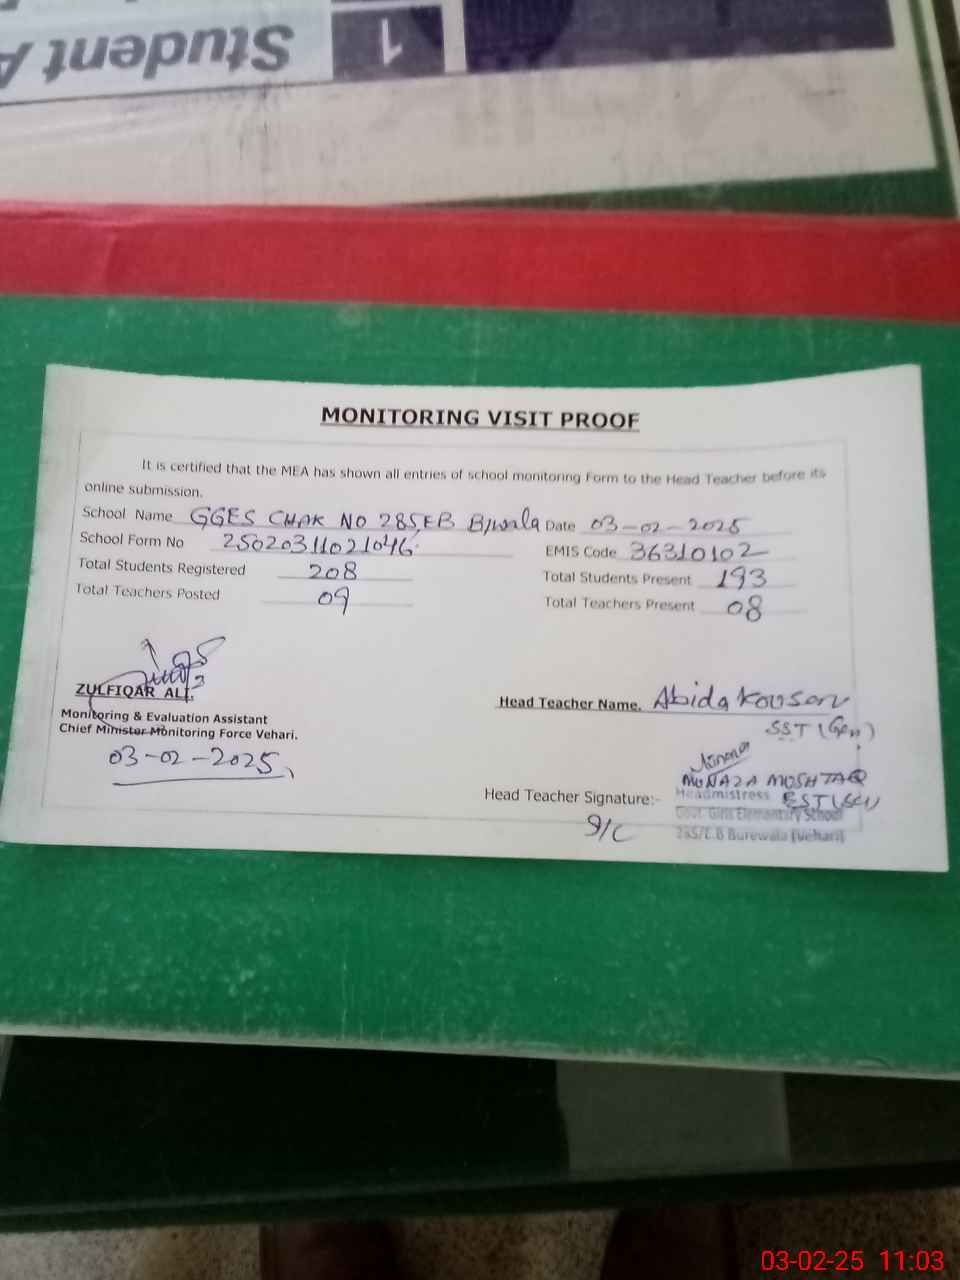 Student A
1
MONITORING VISIT PROOF
It is certified that the MEA has shown all entries of school monitoring Form to the Head Teacher before its
online submission.
School Name GGES CHAK NO 285, EB B/wala Date 03-02-2025
School Form No 25020311021046 EMIS Code 36310102
Total Students Registered 208 Total Students Present 193
Total Teachers Posted 09 Total Teachers Present 08
ZULFIQAR ALI.
Monitoring & Evaluation Assistant
Chief Minister Monitoring Force Vehari.
03-02-2025
Head Teacher Name. Abida Kousar
SST (Gen)
MUNAZA MOSHTAQ
Head Teacher Signature:- Headmistress EST (SCI)
I/C Govt. Girls Elementary School
285/E.B Burewala (Vehari)
03-02-25 11:03